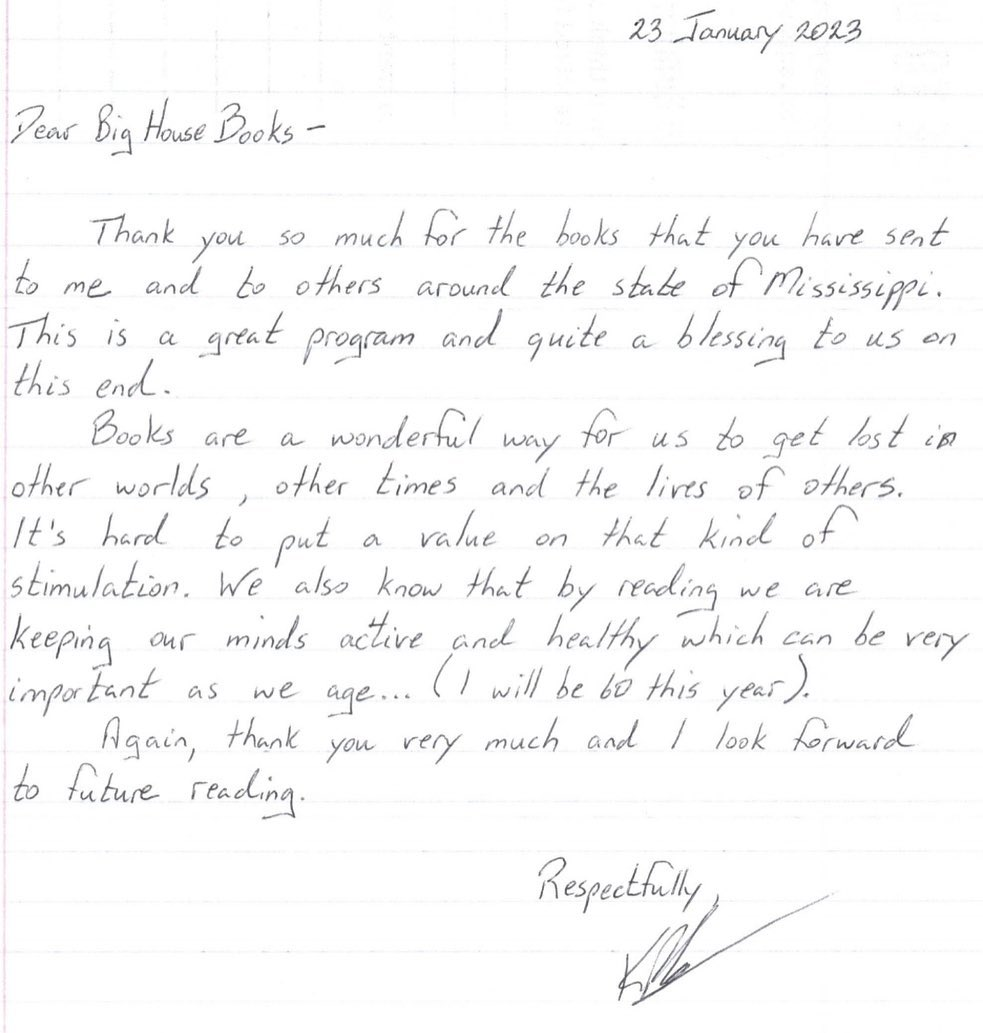 23 January 2023
Dear Big House Books -
Thank you so much for the books that you have sent
to me and to others around the state of Mississippi.
This is a great program and quite a blessing to us on
this end.
Books are a wonderful way for us to get lost in
other worlds, other times and the lives of others.
It's hard to put a value on that kind of
stimulation. We also know that by reading we are
keeping our minds active and healthy which can be very
important as we age... (I will be 60 this year).
Again, thank you very much and I look forward
to future reading.
Respectfully,